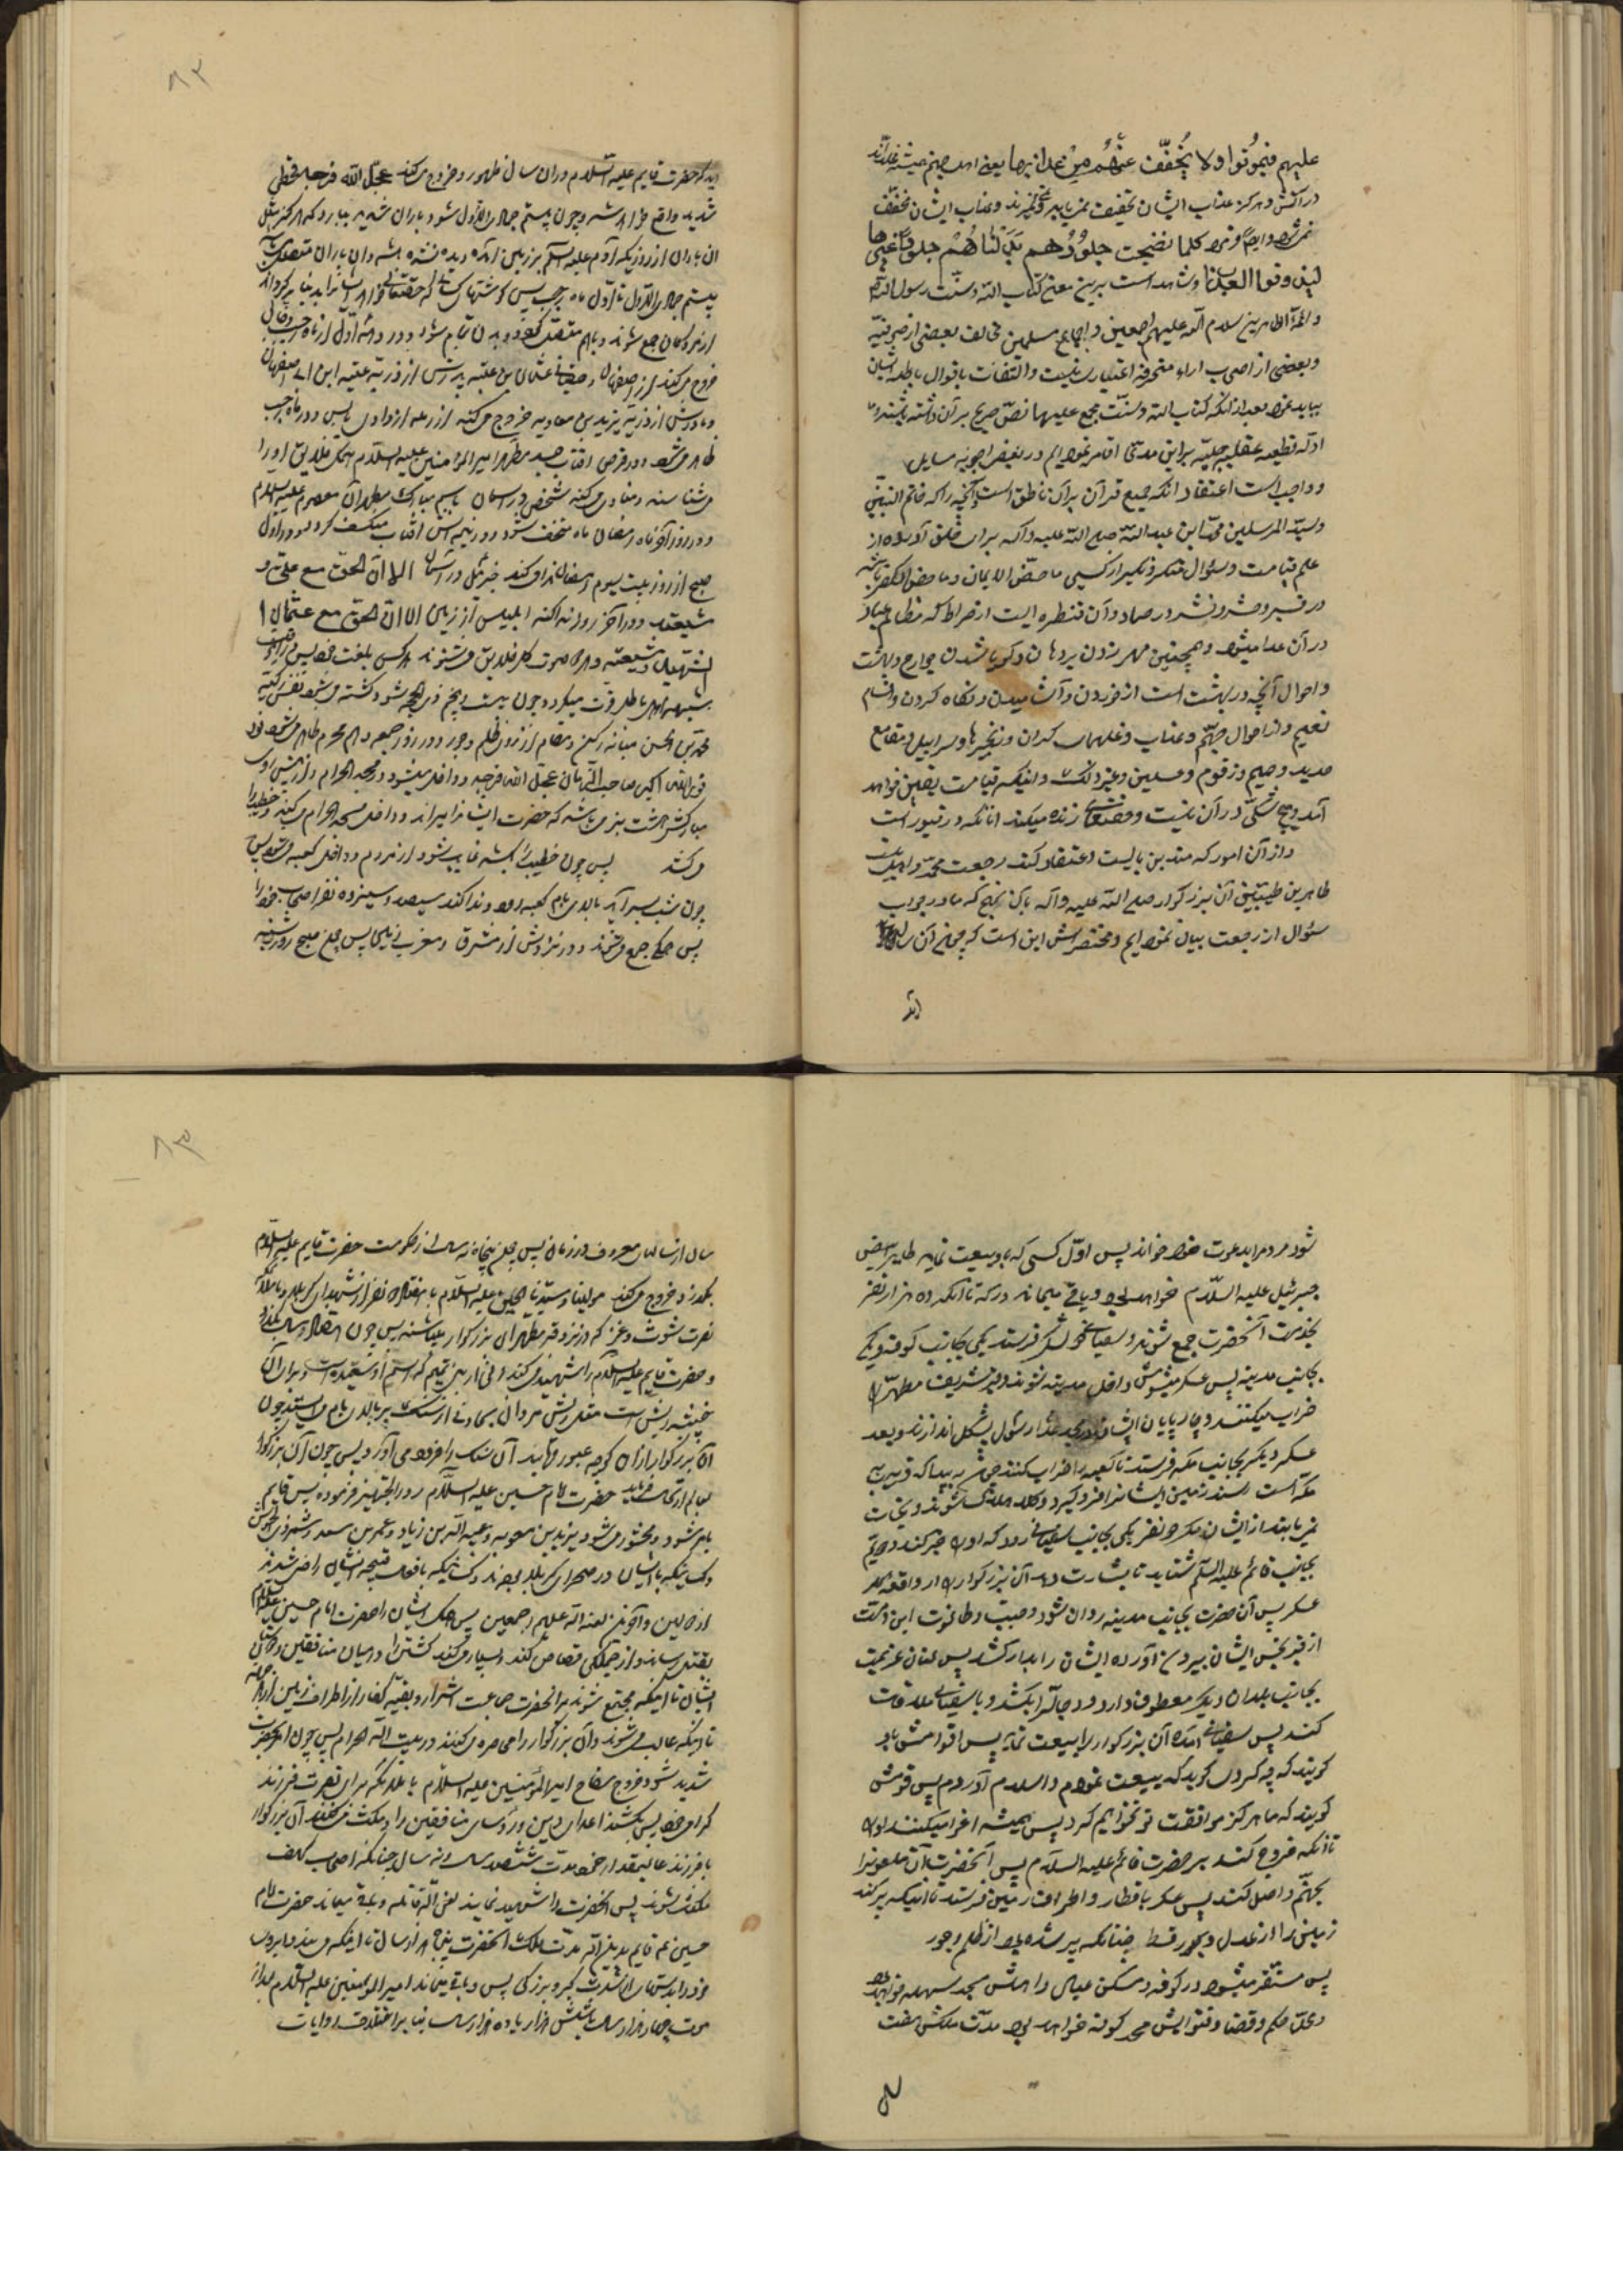 علیهم فیموتوا ولا یخفف عنهم من عذابها یعنی اهل جهنم همیشه
در آتش و هرکز عذاب ایشان تخفیف نمی یابد و نمیرند و عذاب ایشان مخفف
نمیشود و ایضا فرموده کلما نضجت جلودهم بدلناهم جلودا غیرها
لیذوقوا العذاب و شاهد است برین معنی کتاب الله و سنت رسول الله
و ائمه الطاهرین سلام الله علیهم اجمعین و اجماع مسلمین مخالف بعضی از صوفیه
و بعضی از اصحاب اراء منحرفه اعتباری نیست و التفات باقوال باطله ایشان
نباید نمود بعد از آنکه کتاب الله و سنت مجمع علیها نص صریح بر آن داشته باشند و ما
ادله قطعیه عقلیه جلیه بر این مدعی اقامه نموده ایم در بعض اجوبه مسایل
و واجب است اعتقاد آنکه جمیع قرآن بر آن ناطق است و آنچه را که خاتم النبیین
و سید المرسلین محمد ابن عبد الله صلی الله علیه و آله برای خلق آورده از
علم قیامت و سؤال منکر و نکیر از کسی ماحض الایمان و ماحض الکفر باشد
در قبر و حشر و نشر و رصاد و آن قنطره ایست از صراط که مظالم عباد
در آن عدا میشود و همچنین مهر زدن بر دهان و کویا شدن جوارح و بهشت
و احوال آنچه در بهشت است از خوردن و آشامیدن و نکاه کردن و اقسام
نعیم و از احوال جهنم و عذاب و غلهای کران و زنجیرها و سرابیل و مقامع
حدید و حمیم و زقوم و غسلین و غیر ذلک و اینکه قیامت یقین خواهد
آمد و هیچ شکی در آن نیست و حقتعالی زنده میکند آنانکه در قبور است
و از آن امور که متدین بایست اعتقاد کند رجعت محمد و اهلبیت
طاهرین طیبین آن بزرکوار صلی الله علیه و آله بآن نهج که ما در جواب
سؤال از رجعت بیان نموده ایم و مختصرش این است که چون آن سال
آید
۸۲
آید که حضرت قایم علیه السلام در آن سال ظهور و خروج میکند عجل الله فرجه قحطی
شدید واقع خواهد شد و چون بیستم جمادی الاول شود باران شدید ببارد که هرکز مثل
آن باران از روزیکه آدم علیه السلم بر زمین آمده دیده نشده باشد و آن باران متصل
بیستم جمادی الاول تا اول ماه رجب پس کوشتهای کسانی که حقتعالی خواهد
از مردکان جمع شوند و باهم متصل شود و بدن تمام شود و در دهه اول از ماه رجب دجال
خروج میکند از اصفهان و سفیانی عثمان بن عنبسه پدرش از ذریه عتبه ابن ابی سفیان
و مادرش از ذریه یزید بن معاویه خروج میکند از رمله از وادی یابس و در ماه رجب
ظاهر میشود در قرص آفتاب جسد مطهر امیر المؤمنین علیه السلام آنکه خلایق او را
می شناسند و منادی میکند شخصی در آسمان باسم مبارک مطهر آن معصوم علیه السلام
و در روز آخر ماه رمضان ماه منخسف شود و در نیمه اش آفتاب منکسف کردد و در اول
صبح از روز بیست سیوم رمضان ندا کند جبرئیل در آسمان الا ان الحق مع علی و
شیعته و در آخر روز ندا کند ابلیس از زمین الا ان الحق مع عثمان
الشهید و شیعته و هر دو صوت کل خلایق میشنوند هر کس بلغت خود پس در آنوقت
بشبهه اهل باطل قوت میکیرد و چون بیست پنجم ذی الحجه شود کشته میشود نفس زکیه
محمد بن الحسن میانه رکن و مقام از روی ظلم و جور و در روز جمعه دهم محرم ظاهر میشود نور
صاحب الزمان عجل الله فرجه و داخل میشود در مسجد الحرام و از پیش روی
مبارکش هشت بز می باشد که حضرت ایشانرا میراند و داخل مسجد الحرام میکند و خطیب را
میکشد پس چون خطیب را کشد غایب شود از مردم و داخل کعبه میشود پس
چون شب بسر آید بالای بام کعبه رود و ندا کند سیصد و سیزده نفر اصحاب خود را
پس همکی جمع میشوند در نزدش از مشرق و مغرب زمین پس چون صبح روز شنبه
شود مردمرا بدعوت خود خواند پس اول کسی که باو بیعت نماید طایر ابیض
جبرئیل علیه السلام خواهد بود و باقی میماند در مکه تا آنکه ده هزار نفر
بخدمت آنحضرت جمع شوند و سفیانی دو لشکر فرستد یکی بجانب کوفه و یکی
بجانب مدینه پس عسکر میشومش داخل مدینه شوند و قبر شریف مطهر را
خراب میکنند و چارپایان ایشان در مسجد رسول پشکل اندازند و بعد
عسکر دیکر بجانب مکه فرستد تا کعبه را خراب کنند چون به بیدا که قریب به
مکه است رسند زمین ایشانرا فرو کیرد و کلا هلاک شوند و نجات
نیابند از ایشان مکر دو نفر یکی بجانب سفیانی رود که او را خبر کند و دویم
بجانب قائم علیه السلم شتابد تا بشارت دهد آن بزرکوار را از واقعه
عسکر پس آن حضرت بجانب مدینه روان شود و جبت و طاغوت این امت
از قبر نجس ایشان بیرون آورده ایشان را بدار کشد پس عنان عزیمت
بجانب بلدان دیکر معطوف دارد و دجال را بکشد و با سفیانی ملاقات
کند پس سفیانی آمده آن بزرکوار را بیعت نماید پس اقوامش باو
کویند که چه کردی کوید که بیعت نمودم و اسلام آوردم پس قومش
کویند که ما هرکز موافقت تو نخواهیم کرد پس همیشه اغرا میکنند او را
تا آنکه خروج کند بر حضرت قائم علیه السلام پس آنحضرت آن ملعونرا
بجهنم واصل کند پس عسکر باقطار و اطراف زمین فرستد تا اینکه پر کند
زمین را از عدل و قسط چنانکه پر شده بود از ظلم و جور
پس مستقر میشود در کوفه و مسکن عیال و اهلش مسجد سهله خواهد بود
و محل حکم و قضا و فتوایش مسجد کوفه خواهد بود مدت ملکش هفت
سال
۸۳
سال از سالهای معروف در زمان پس چون پنجاه نه سال از حکومت حضرت قایم علیه السلام
بکذرد خروج میکند مولینا و سیدنا الحسین علیه السلام با هفتاد نفر از شهدای کربلا و ملائکه
نصرت شوند و غیر که در نزد قبر مطهر آن بزرکوار میباشند پس چون هفتاد سال بکذرد
و حضرت قایم علیه السلام را شهید میکند زنی از بنی تمیم که اسم او سعیده است و برای آن
خبیثه ریش است مثل ریش مردان بهاونی از سنک بر بالای بام میایستد چون
آن بزرکوار از آن کوچه عبور نماید آن سنک را فرود می آورد پس چون آن بزرکوار
بعالم ارتحال فرماید حضرت امام حسین علیه السلام او را تجهیز فرموده پس قایم
بامر شود و محشور میشود یزید بن معویه و عبید الله بن زیاد و عمر بن سعد و شمر ذی الجوشن
و کسانیکه با ایشان در صحرای کربلا بودند و کسانیکه بافعال قبیحه ایشان راضی شدند
از اولین و آخرین لعنة الله علیهم اجمعین پس همکی ایشان را حضرت امام حسین علیه السلام
بقتل رساند و از همکی قصاص کند و بسیار میکند کشتن را در میان منافقین و دوستان
ایشان تا اینکه مجتمع شوند بر آنحضرت جماعت اشرار و بقیه کفار از اطراف زمین
تا اینکه غالب میشوند و آن بزرکوار را محاصره میکنند در بیت الله الحرام پس چون امر بحضرت
شدید شود خروج سفاح امیر المؤمنین علیه السلام با ملائکه برای نصرت فرزند
کرامی خود پس بکشند اعدای دین و رؤسای منافقین را و مکث میکند آن بزرکوار
با فرزند عالیمقدار خود مدت ششصد سال و نه سال چنانکه اصحاب کهف
مکث نمودند پس آنحضرت را شهید نمایند لعن الله قاتله و باقی میماند حضرت امام
حسین بدین الله مدت ملک آنحضرت پنجاه هزار سال تا اینکه میبندد ابروی
خود را بدستمال از شدت کبر و بزرکی پس و باقی میماند امیر المؤمنین علیه السلام بعد از
موت چهار هزار سال یا شش هزار یا ده هزار سال بنا بر اختلاف روایات